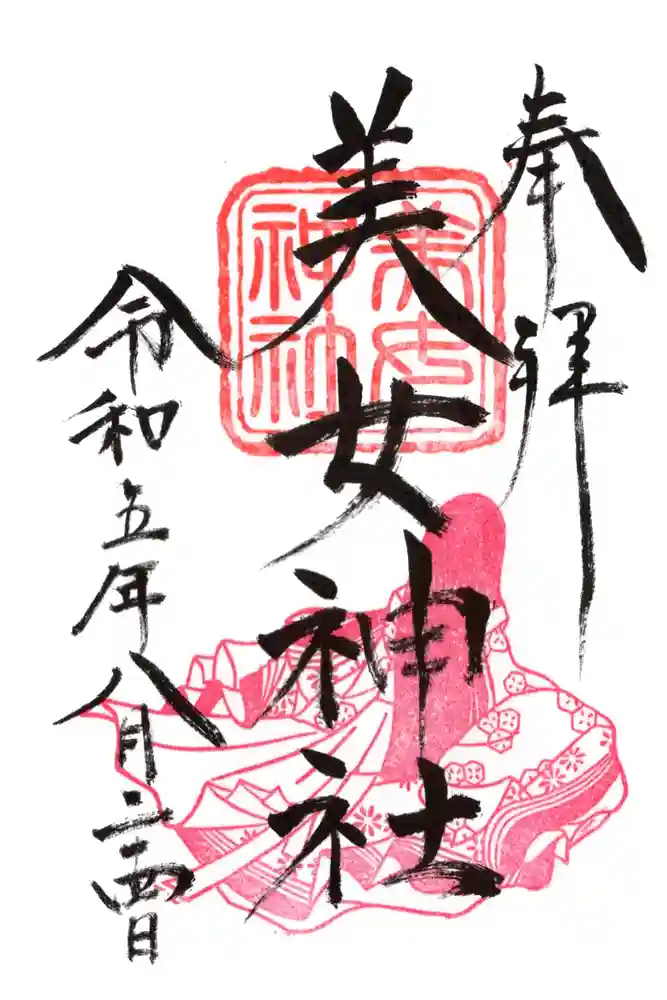 奉拝
美女神社
令和五年八月二十四日
美女
神社